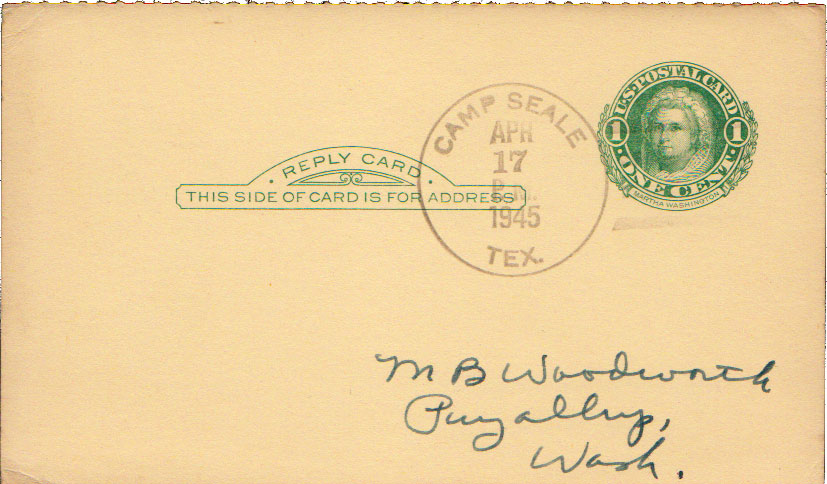 U.S. POSTAL CARD
1 1
ONE CENT
MARTHA WASHINGTON
CAMP SEALE
APR
17
1945
TEX.
REPLY CARD
THIS SIDE OF CARD IS FOR ADDRESS
M B Woodworth
Puyallup,
Wash.